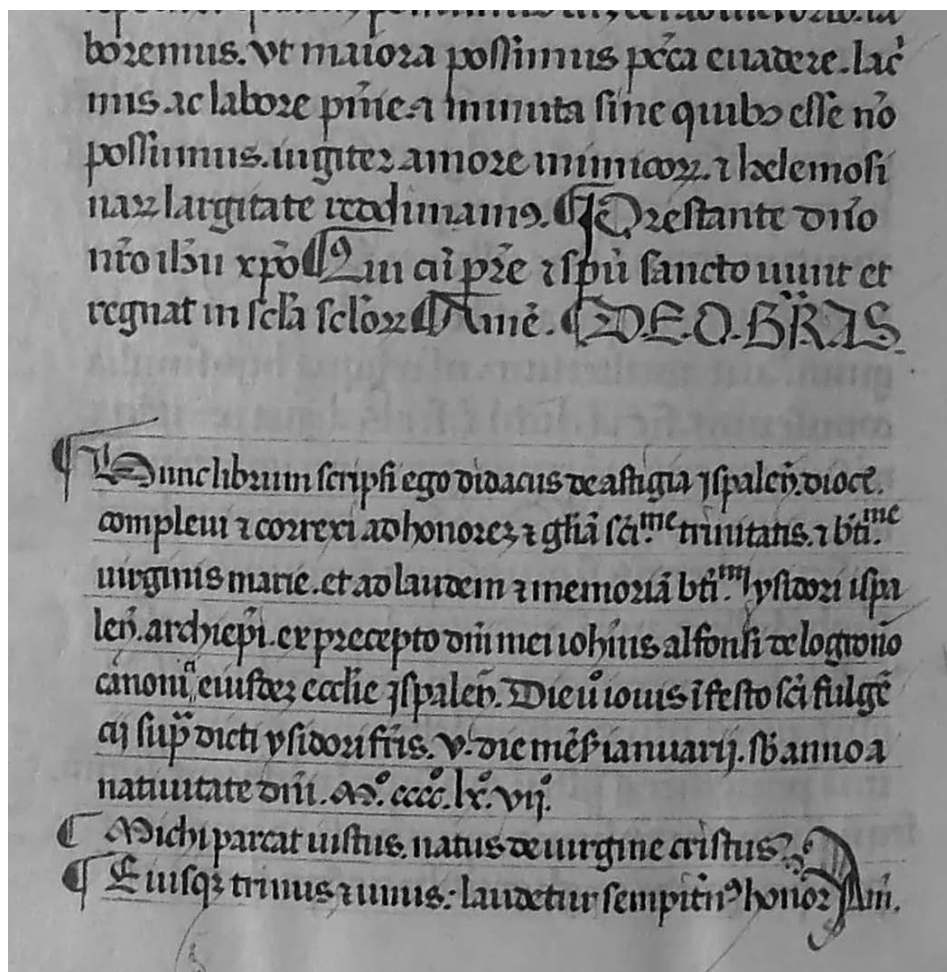 boremus. vt maiora possimus pccã euadere. lacͥ
mis. ac labore pñie. ⁊ minuta sine quibꝰ esse nõ
possimus. iugiter amore inimicoꝝ. ⁊ helemosi
naꝝ largitate redimamꝰ. ¶ Prestante dño
nr̃o ihũ xpõ ¶ Qui cũ pr̃e ⁊ spũ sancto uiuit et
regnat in scľa scľoꝝ ¶ Amẽ. ¶ DEO. GRAS
¶ Hunc librum scripsi ego didacus de astigia yspaleñ. dioce.
compleui ⁊ correxi ad honorez ⁊ gľiã sctͥ.me trinitatis. ⁊ btͥ.me
uirginis marie. et ad laudem ⁊ memoriã btͥ.mͥ ysidori ispa
leñ. archiepͥ. ex precepto dñi mei iohñis alfonsi de logroño
canonicͥ eiusdez ecclie yspaleñ. Die uº iouis ĩ festo scͥ fulgẽ
cij supᵃdicti ysidori fr̃is. v. die mẽs̃ ianuarij. sb anno a
natiuitate dñi. Mº. ccccº. lxº. vijº.
¶ Michi parcat uistus. natus de uirgine cristus?
¶ Eiusqꝫ trinus ⁊ unus: laudetur sempitñꝰ honor Am̃.